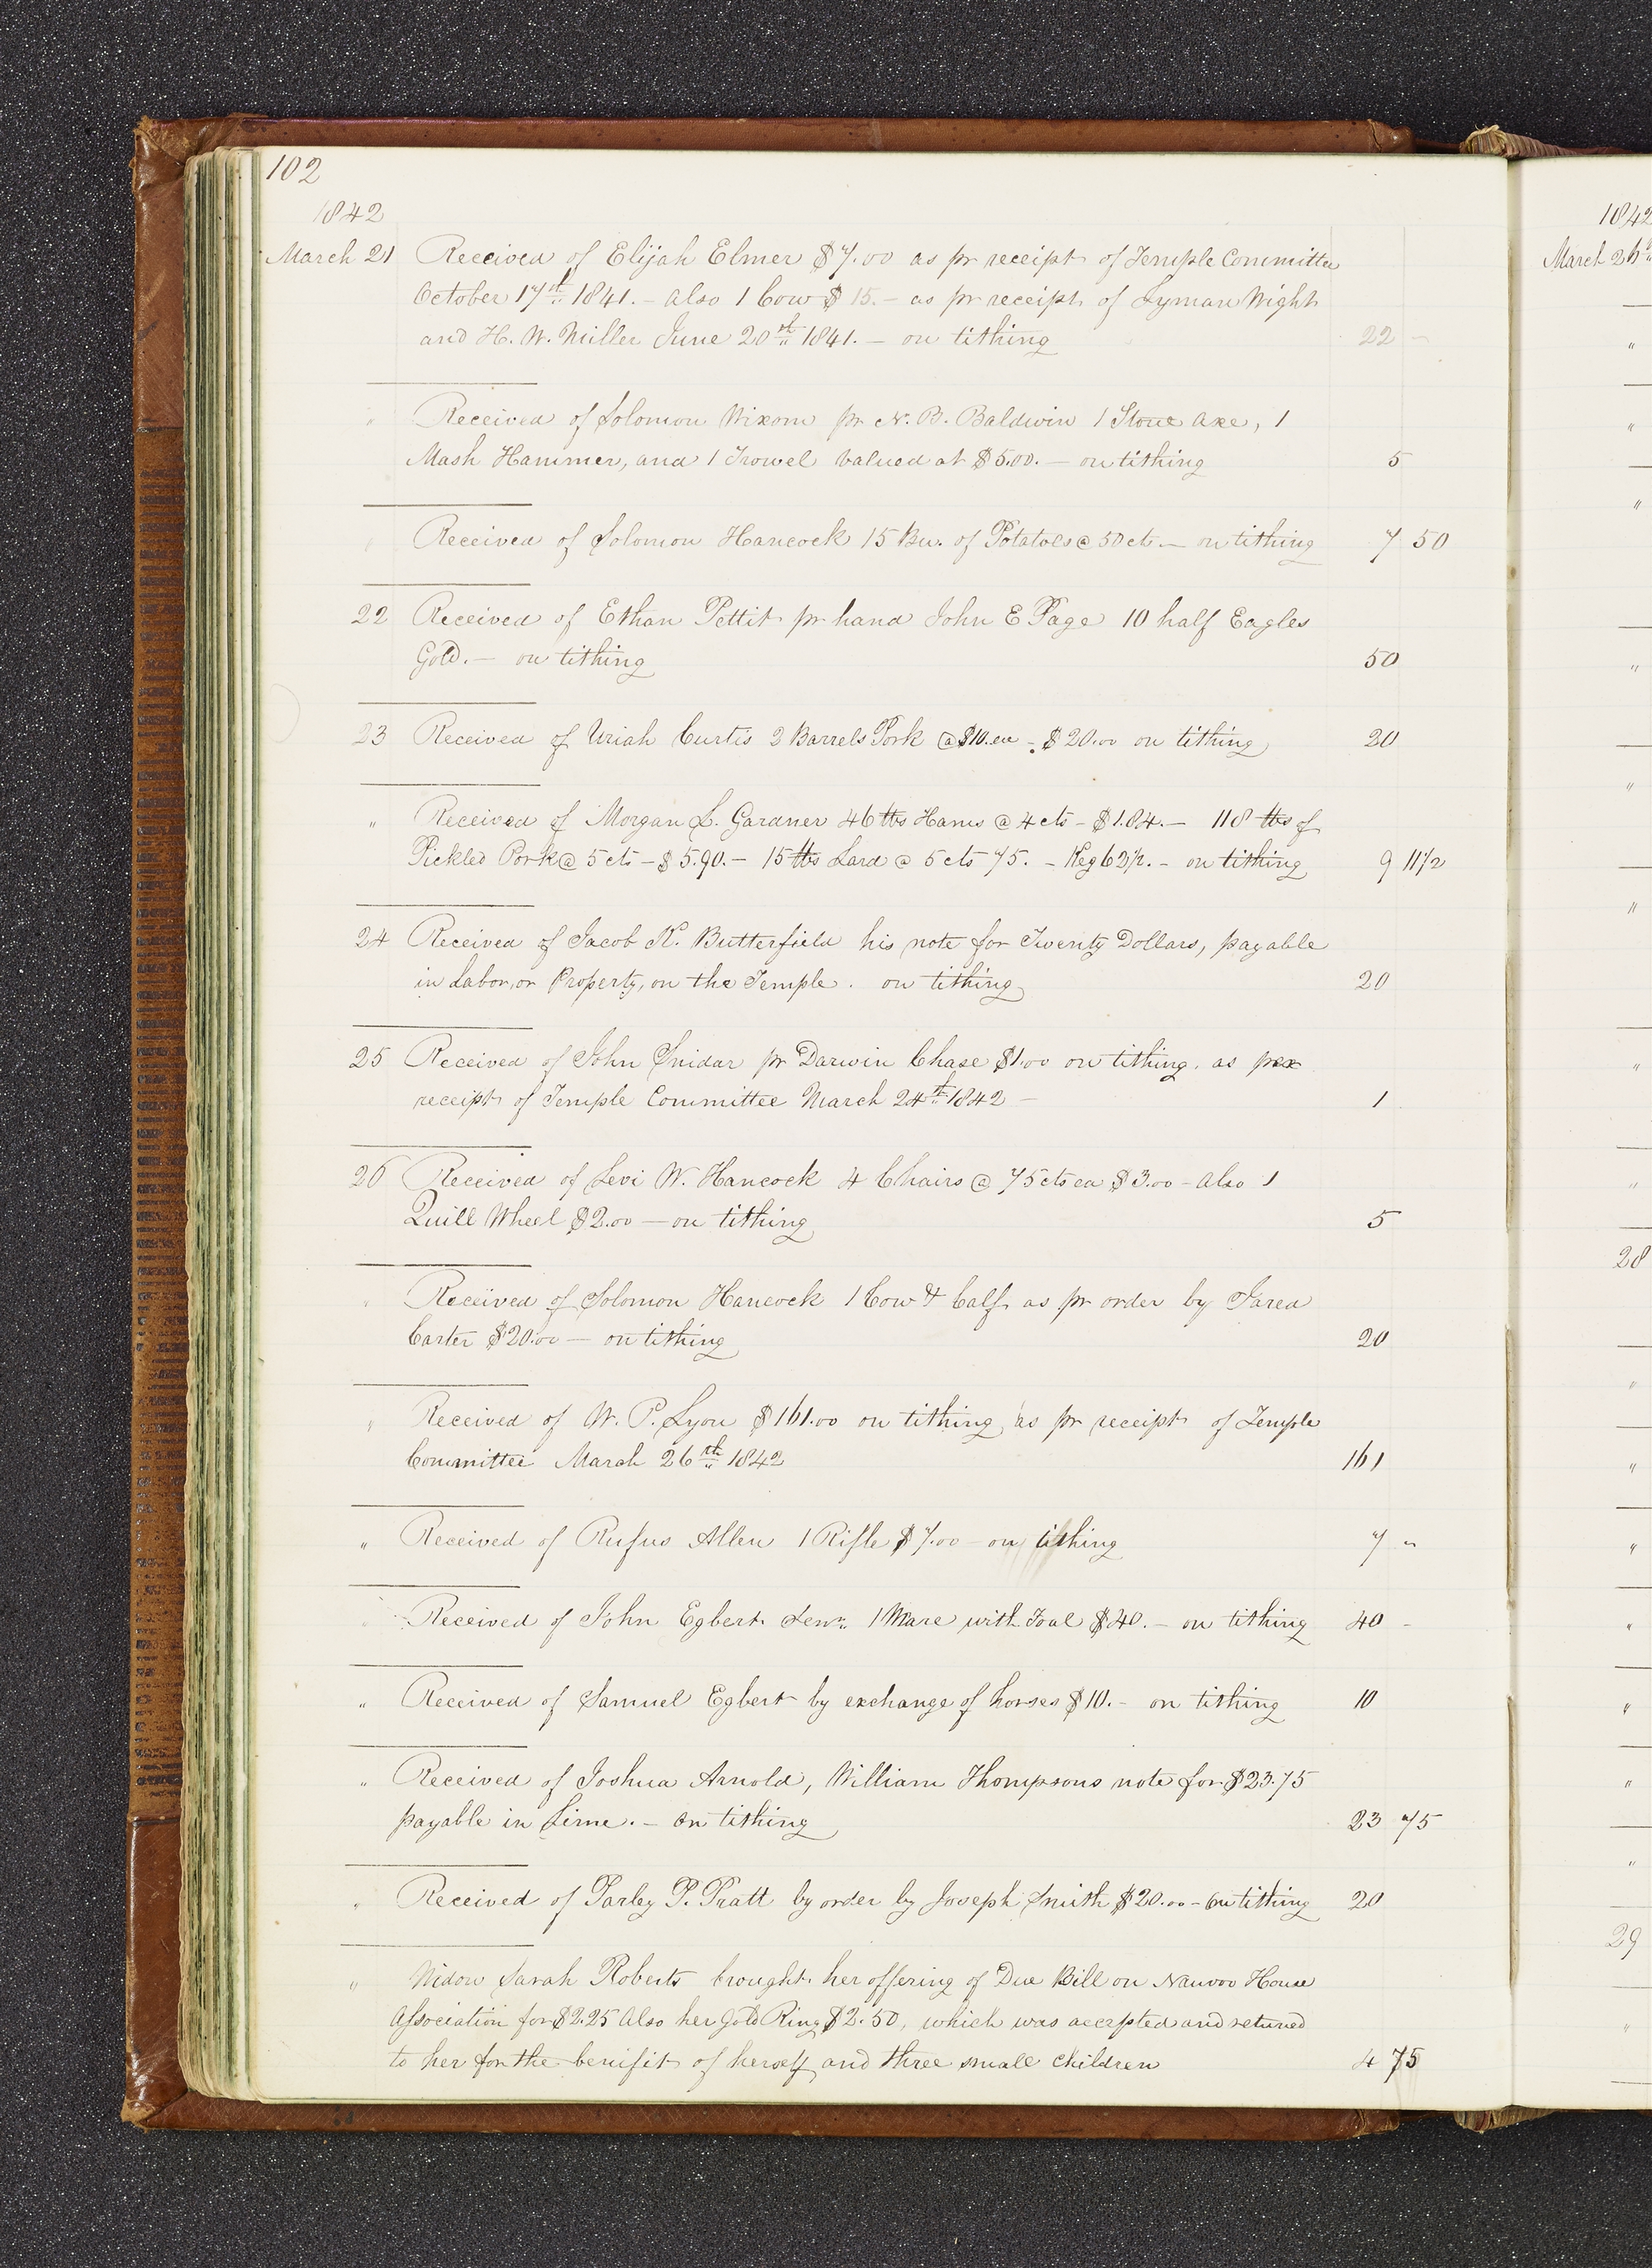 102
1842
March 21 Received of Elijah Elmer $7.00 as pr receipt of Temple Committee
October 17th 1841. - also 1 Cow $15. - as pr receipt of Lyman Wight
and H. W. Miller June 20th 1841. - on tithing 22 -
" Received of Solomon Wixom pr N. B. Baldwin 1 Stone axe, 1
Mash Hammer, and 1 Trowel valued at $5.00. - on tithing 5
" Received of Solomon Hancock 15 Bu. of Potatoes @ 50 cts. - on tithing 7 50
22 Received of Ethan Pettit pr hand John E Page 10 half Eagles
Gold. - on tithing 50
23 Received of Uriah Curtis 2 Barrels Pork @ $10. ea - $20.00 on tithing 20
" Received of Morgan L. Gardner 46 lbs Hams @ 4 cts - $1.84. - 118 lbs of
Pickled Pork @ 5 cts - $5.90. - 15 lbs Lard @ 5 cts 75. - Keg 62½. - on tithing 9 11½
24 Received of Jacob K. Butterfield his note for Twenty Dollars, payable
in Labor, or Property, on the Temple. on tithing 20
25 Received of John Snidar pr Darwin Chase $1.00 on tithing. as per
receipt of Temple Committee March 24th 1842 - 1
26 Received of Levi W. Hancock 4 Chairs @ 75 cts ea $3.00 - also 1
Quill Wheel $2.00 - on tithing 5
" Received of Solomon Hancock 1 Cow & Calf as pr order by Jared
Carter $20.00 - on tithing 20
" Received of W. P. Lyon $161.00 on tithing as pr receipt of Temple
Committee March 26th 1842 161
" Received of Rufus Allen 1 Rifle $7.00 - on tithing 7 "
" Received of John Egbert Senr. 1 Mare with Foal $40. - on tithing 40 -
" Received of Samuel Egbert by exchange of horses $10. - on tithing 10
" Received of Joshua Arnold, William Thompsons note for $23.75
payable in Lime. - on tithing 23 75
" Received of Parley P. Pratt by order by Joseph Smith $20.00 - on tithing 20
" Widow Sarah Roberts brought her offering of Due Bill on Nauvoo House
Association for $2.25 Also her Gold Ring $2.50, which was accepted and retuned
to her for the benifit of herself and three small children 4 75
1842
March 26
"
"
"
"
"
"
"
"
28
"
"
"
"
"
"
"
29
"